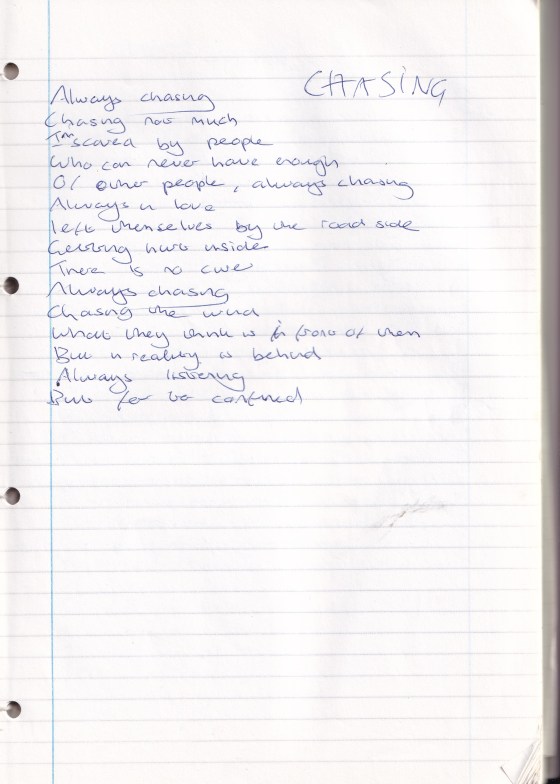 CHASING
Always chasing
Chasing too much
I'm scared by people
Who can never have enough
Of other people, always chasing
Always in love
left themselves by the road side
Getting hurt inside
There is no cure
Always chasing
Chasing the wind
What they think is in front of them
But in reality is behind
Always listening
But far too confused